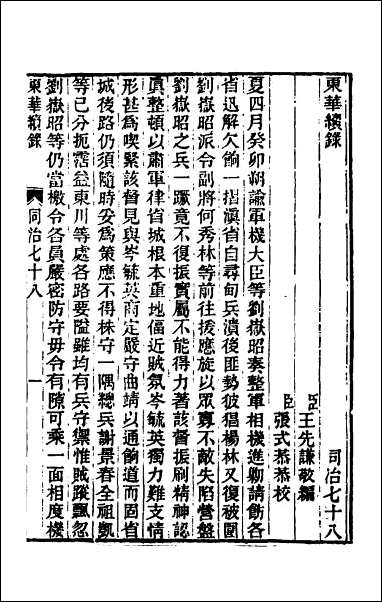 東華續錄
同治七十八
臣王先謙敬編
臣張式恭恭校
夏四月癸卯朔諭軍機大臣等劉嶽昭奏整軍相機進勦請飭各
省迅解欠餉一摺滇省自尋甸兵潰後匪勢彼猖楊林又復被圍
劉嶽昭派令副將何秀林等前往援應旋以眾寡不敵失陷營盤
劉嶽昭之兵一蹶竟不復振實屬不能得力著該督振刷精神認
眞整頓以肅軍律省城根本重地偪近賊氛岑毓英獨力難支情
形甚為喫緊該督見與岑毓英商定嚴守曲請以通餉道而固省
城後路仍須隨時妥為策應不得株守一隅總兵謝景春全祖凱
等已分扼霑益東川等處各路要隘雖均有兵守禦惟賊蹤飄忽
劉嶽昭等仍當檄令各員嚴密防守毋令有隙可乘一面相度機
東華續錄
同治七十八
一